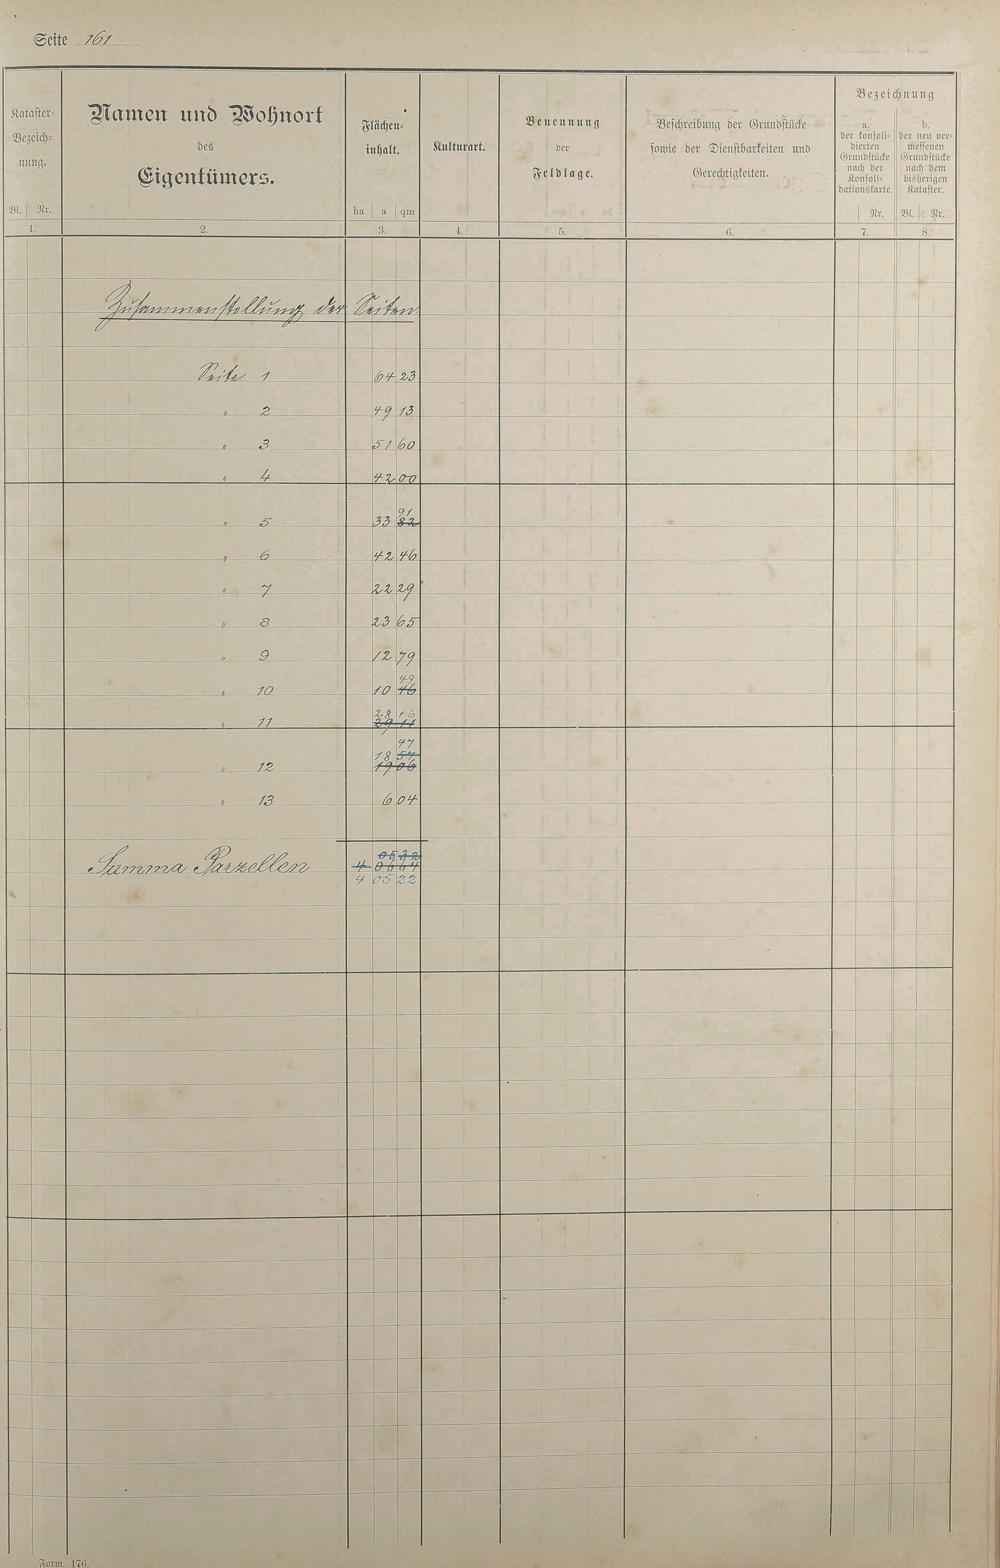 Seite 161
Kataster-Bezeich-nung.
Bl. Nr.
Namen und Wohnort
des
Eigentümers.
Flächen-
inhalt.
ha a qm
Kulturart.
Benennung
der
Feldlage.
Beschreibung der Grundstücke
sowie der Dienstbarkeiten und
Gerechtigkeiten.
Bezeichnung
a.
der konsoli-
dierten
Grundstücke
nach der
Konsoli-
dationskarte.
Nr.
b.
der neu ver-
messenen
Grundstücke
nach dem
bisherigen
Kataster.
Bl. Nr.
1. 2. 3. 4. 5. 6. 7. 8.
Zusammenstellung der Seiten
Seite 1 64 23
" 2 49 13
" 3 51 60
" 4 42 00
91
" 5 33 82
" 6 42 46
" 7 22 29
" 8 23 65
" 9 12 79
49
" 10 10 46
28 16
" 11 29 11
47
18 57
" 12 19 06
" 13 6 04
05 32
Summa Parzellen 4 06 64
4 05 22
Form. 176.